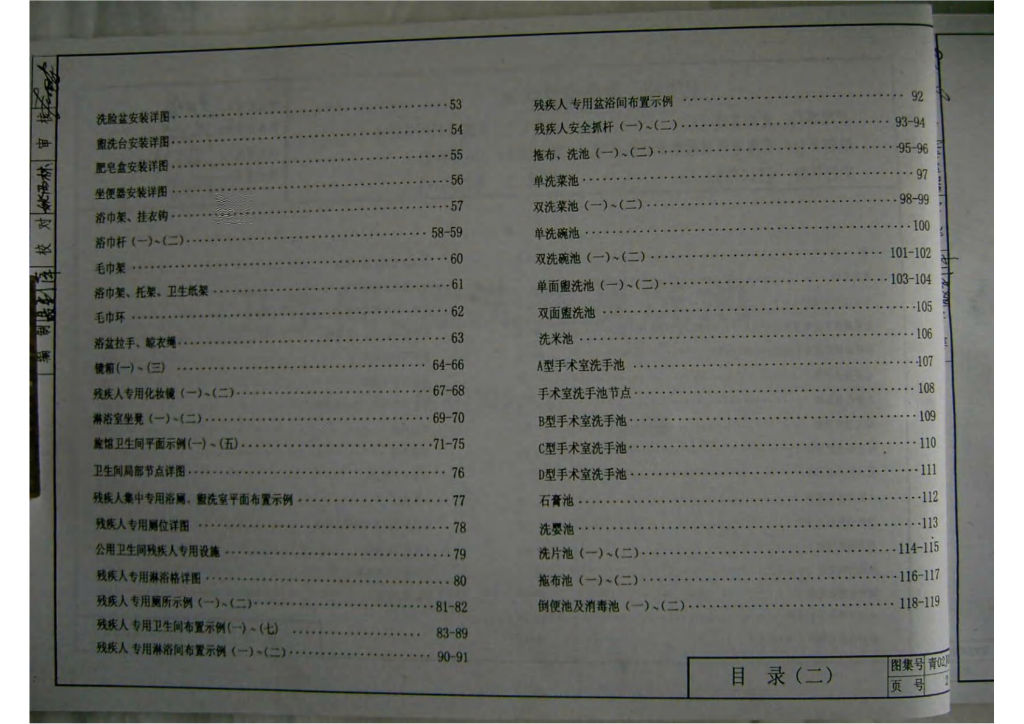 洗脸盆安装详图 53
盥洗台安装详图 54
肥皂盒安装详图 55
坐便器安装详图 56
浴巾架、挂衣钩 57
浴巾杆（一）~（二） 58-59
毛巾架 60
浴巾架、托架、卫生纸架 61
毛巾环 62
浴盆拉手、晾衣绳 63
镜箱(一)~(三) 64-66
残疾人专用化妆镜（一）~（二） 67-68
淋浴室坐凳（一）~（二） 69-70
旅馆卫生间平面示例(一)~(五) 71-75
卫生间局部节点详图 76
残疾人集中专用浴厕、盥洗室平面布置示例 77
残疾人专用厕位详图 78
公用卫生间残疾人专用设施 79
残疾人专用淋浴格详图 80
残疾人专用厕所示例（一）~（二） 81-82
残疾人专用卫生间布置示例(一)~(七) 83-89
残疾人专用淋浴间布置示例（一）~（二） 90-91
残疾人专用盆浴间布置示例 92
残疾人安全抓杆（一）~（二） 93-94
拖布、洗池（一）~（二） 95-96
单洗菜池 97
双洗菜池（一）~（二） 98-99
单洗碗池 100
双洗碗池（一）~（二） 101-102
单面盥洗池（一）~（二） 103-104
双面盥洗池 105
洗米池 106
A型手术室洗手池 107
手术室洗手池节点 108
B型手术室洗手池 109
C型手术室洗手池 110
D型手术室洗手池 111
石膏池 112
洗婴池 113
洗片池（一）~（二） 114-115
拖布池（一）~（二） 116-117
倒便池及消毒池（一）~（二） 118-119
目 录（二）
图集号 青02J
页 号 2
审 核
校 对
编 制